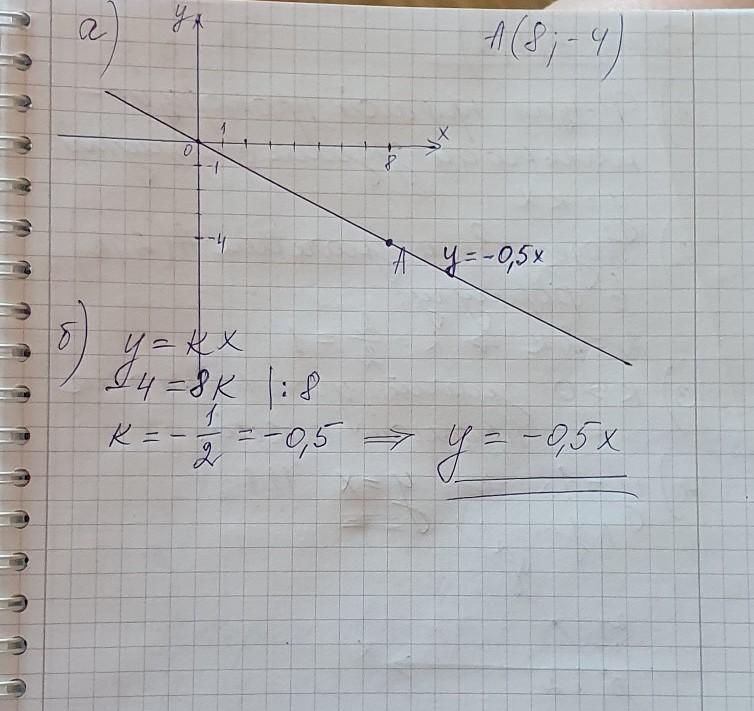 а)
y
A(8;-4)
1
x
0
8
-1
-4
A
y=-0,5x
б)
y = kx
-4 = 8k |: 8
k = -1/2 = -0,5 ⇒ y = -0,5x